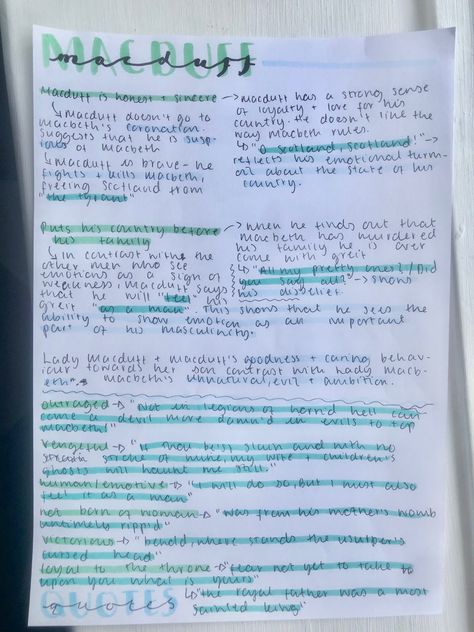 MACDUFF
macduff
Macduff is honest + sincere
↳ Macduff doesn't go to
Macbeth's coronation.
Suggests that he is susp-
icious of Macbeth
↳ Macduff is brave - he
fights + kills Macbeth,
freeing Scotland from
"the tyrant"
→ Macduff has a strong sense
of loyalty + love for his
country. He doesn't like the
way Macbeth rules.
↳ "O Scotland, Scotland!" →
reflects his emotional turm-
oil about the state of his
country.
Puts his country before
his family
↳ In contrast with the
other men who see
emotion as a sign of
weakness, Macduff says
that he will "feel" his
greif "as a man". This shows that he sees the
ability to show emotion as an important
part of his masculinity.
→ When he finds out that
Macbeth has murdered
his family he is over
come with greif
↳ "All my pretty ones? / Did
you say all?" → shows
his disbelief.
Lady Macduff + Macduff's goodness + caring behav-
iour towards her son contrast with Lady Macb-
eth + Macbeth's unnatural, evil + ambition.
outraged → "Not in legions of horrid hell can
come a devil more damn'd in evils to top
Macbeth!"
vengeful → "If thou be'st slain and with no
stroke of mine, my wife + children's
ghosts will haunt me still."
human/emotive → "I will do so, But I must also
feel it as a man"
not born of woman → "was from his mother's womb
untimely ripp'd"
victorious → "behold, where stands the usurper's
cursed head"
loyal to the throne → "fear not yet to take
upon you what is yours"
↳ "the royal father was a most
sainted king"
QUOTES
quotes